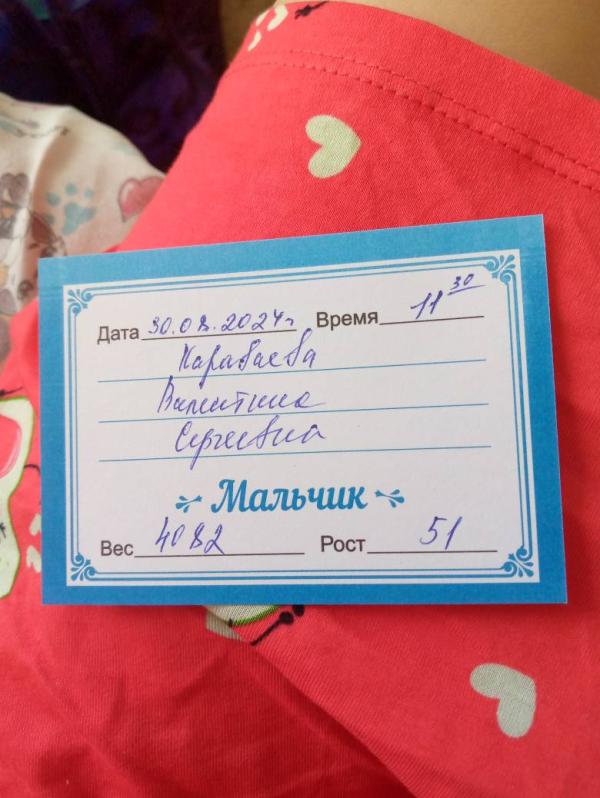 Дата 30.08.2024г Время 11 30
Карабаева
Валентина
Сергеевна
Мальчик
Вес 4082 Рост 51